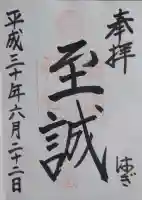 奉拝
至誠
はぎ
平成三十年六月二十二日